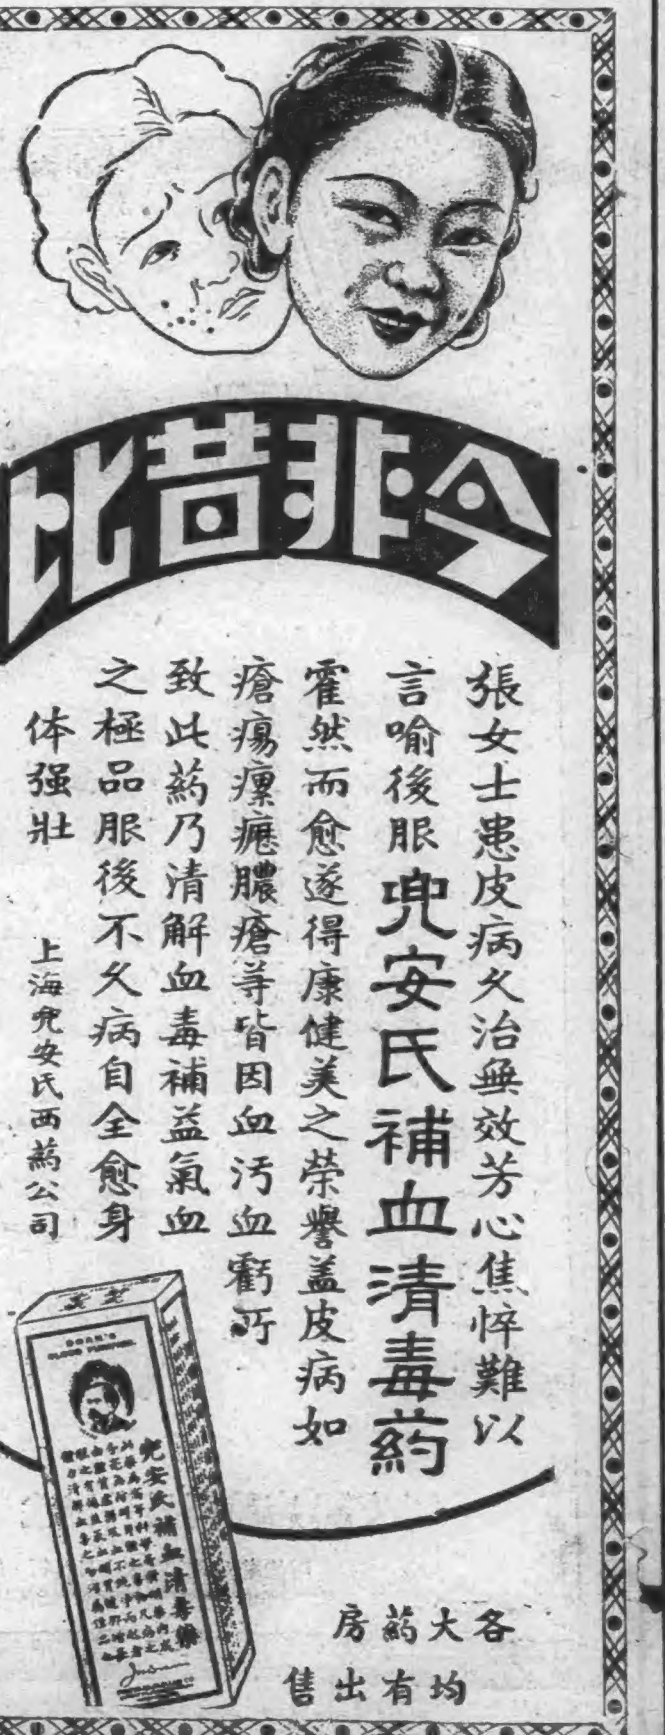 今非昔比
張女士患皮病久治無效芳心焦悴難以
言喻後服兜安氏補血清毒葯
霍然而愈遂得康健美之荣譽蓋皮病如
瘡瘍瘰癧膿瘡等皆因血污血虧所
致此葯乃清解血毒補益氣血
之極品服後不久病自全愈身
体强壯
上海兜安氏西葯公司
DOAN'S
兜安氏補血清毒藥
各大葯房
均有出售